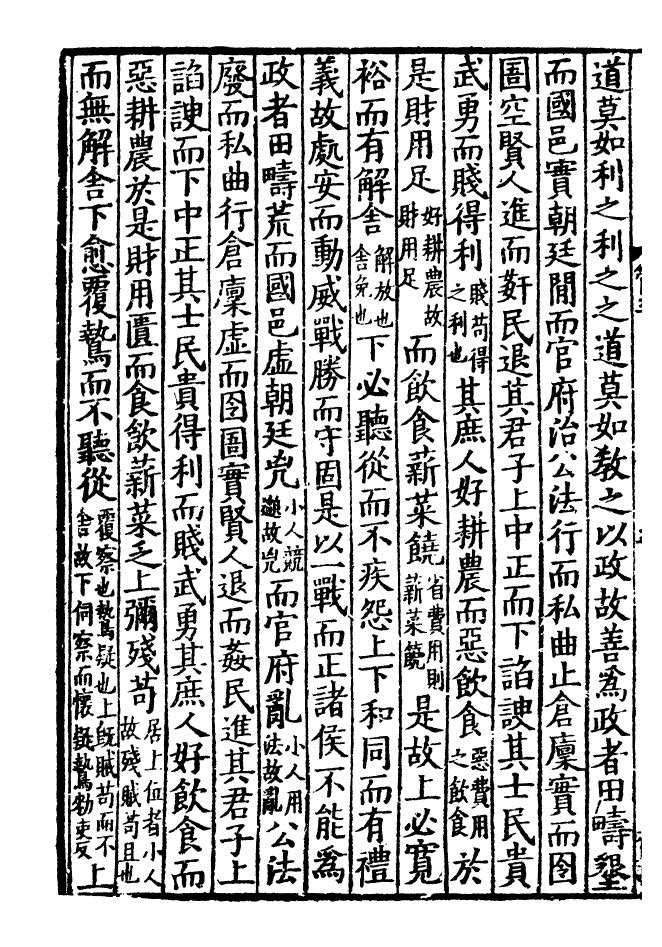 道莫如利之利之之道莫如教之以政故善爲政者田疇墾
而國邑實朝廷閒而官府治公法行而私曲止倉廩實而囹
圄空賢人進而姧民退其君子上中正而下諂諛其士民貴
武勇而賤得利賤苟得之利也其庶人好耕農而惡飲食惡費用之飲食於
是財用足好耕農故財用足而飲食薪菜饒省費用則薪菜饒是故上必寬
裕而有解舎解放也舎免也下必聽從而不疾怨上下和同而有禮
義故處安而動威戰勝而守固是以一戰而正諸侯不能爲
政者田疇荒而國邑虚朝廷兇小人競進故兇而官府亂小人用法故亂公法
廢而私曲行倉廩虚而囹圄實賢人退而姦民進其君子上
諂諛而下中正其士民貴得利而賤武勇其庶人好飲食而
惡耕農於是財用匱而食飲薪菜乏上彌殘苟居上位者小人故殘賊苟且也
而無解舎下愈覆鷙而不聽從覆察也鷙疑也上旣賊苟而不舎故下伺察而懷疑鷙勑吏反上